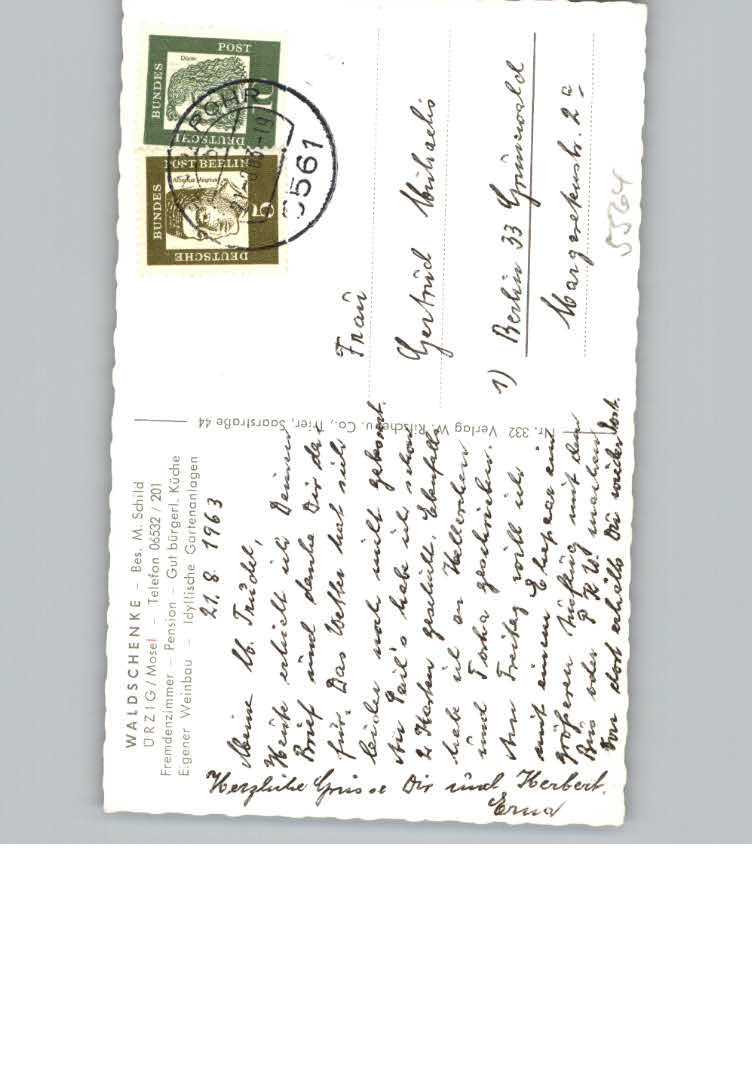 WALDSCHENKE – Bes. M. Schild
ÜRZIG/Mosel – Telefon 06532 / 201
Fremdenzimmer – Pension – Gut bürgerl. Küche
Eigener Weinbau – Idyllische Gartenanlagen
21. 8. 1963
Meine lb. Trudel,
Heute erhielt ich Deinen
Brief und danke Dir da-
für. Das Wetter hat sich
leider noch nicht gebessert.
An Pail's habe ich schon
2 Karten geschickt. Ebenfalls
habe ich an
und geschrieben.
Am Freitag will ich
mit einem Ehepaar einen
größeren Ausflug mit dem
Bus oder P.K.W. machen
Von dort erhälts Du weiter Post.
Herzliche Grüsse Dir und Herbert.
Erna
Nr. 332 Verlag W. Ritscher u. Co., Trier, Saarstraße 44
DEUTSCHE
BUNDES
POST
Dürer
10
DEUTSCHE
BUNDES
POST BERLIN
Albertus Magnus
5
5561
Frau
Gertrud Michaelis
1) Berlin 33 Grunewald
Margaretenstr. 2a
5564